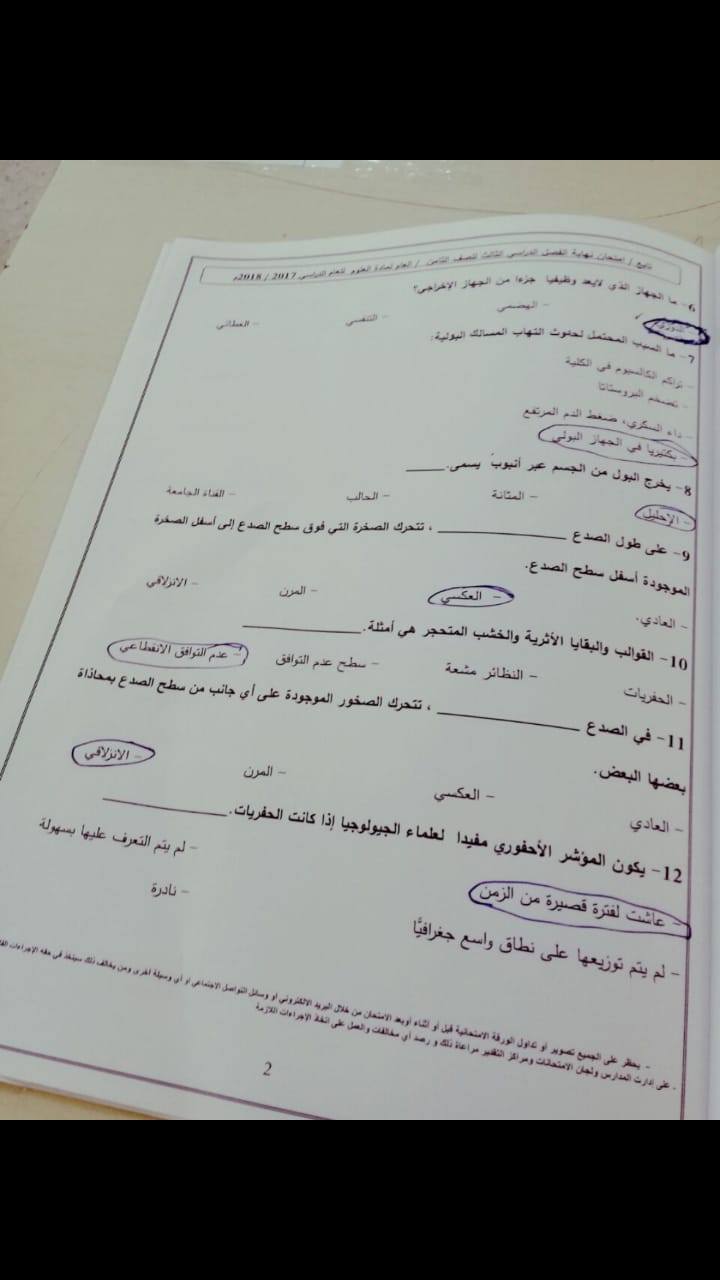 تابع / امتحان نهاية الفصل الدراسي الثالث للصف الثامن / العام لمادة العلوم للعام الدراسي 2017 / 2018م
6- ما الجهاز الذي لايعد وظيفيا جزءا من الجهاز الإخراجي؟
- الهضمي - التنفسي - العظلي
7- ما السبب المحتمل لحدوث التهاب المسالك البولية:
- تراكم الكالسيوم في الكلية
- تضخم البروستاتا
- داء السكري، ضغط الدم المرتفع
- بكتيريا في الجهاز البولي
8- يخرج البول من الجسم عبر أنبوب يسمى. ____
- الإحليل - المثانة - الحالب - القناة الجامعة
9- على طول الصدع ____________ ، تتحرك الصخرة التي فوق سطح الصدع إلى أسفل الصخرة
الموجودة أسفل سطح الصدع.
- العادي. - العكسي - المرن - الانزلاقي
10- القوالب والبقايا الأثرية والخشب المتحجر هي أمثلة. ____________
- الحفريات - النظائر مشعة - سطح عدم التوافق - عدم التوافق الانقطاعي
11- في الصدع ____________ ، تتحرك الصخور الموجودة على أي جانب من سطح الصدع بمحاذاة
بعضها البعض.
- العادي - العكسي - المرن - الانزلاقي
12- يكون المؤشر الأحفوري مفيدا لعلماء الجيولوجيا إذا كانت الحفريات. ____________
- عاشت لفترة قصيرة من الزمن - لم يتم التعرف عليها بسهولة
- لم يتم توزيعها على نطاق واسع جغرافيًّا - نادرة
- يحظر على الجميع تصوير أو تداول الورقة الامتحانية قبل أو أثناء أوبعد الامتحان من خلال البريد الالكتروني أو وسائل التواصل الاجتماعي أو أي وسيلة أخرى ومن يخالف ذلك سيتخذ في حقه الإجراءات
- على إدارت المدارس ولجان الامتحانات ومراكز التقدير مراعاة ذلك و رصد أي مخالفات والعمل على اتخاذ الإجراءات اللازمة
2